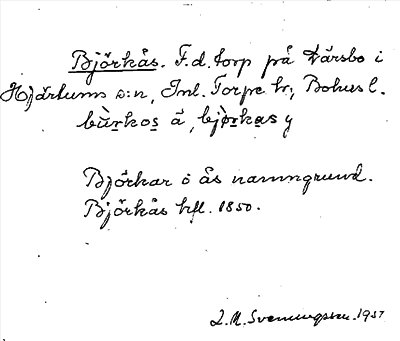 Björkås. F.d. torp på Därsbo i
Hjärtums s:n, Inl. Torpe hr., Bohusl.
bù̀rkos ä, bjò̀rkas y
Björkar o ås namngrund.
Björkås hfl. 1850.
J. M. Svenungsson. 1937